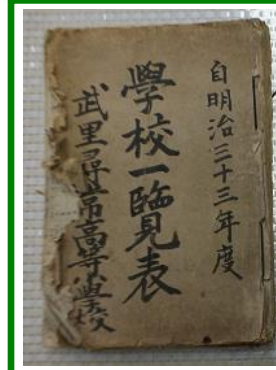 自明治三十三年度
學校一覽表
武里尋常高等小學校